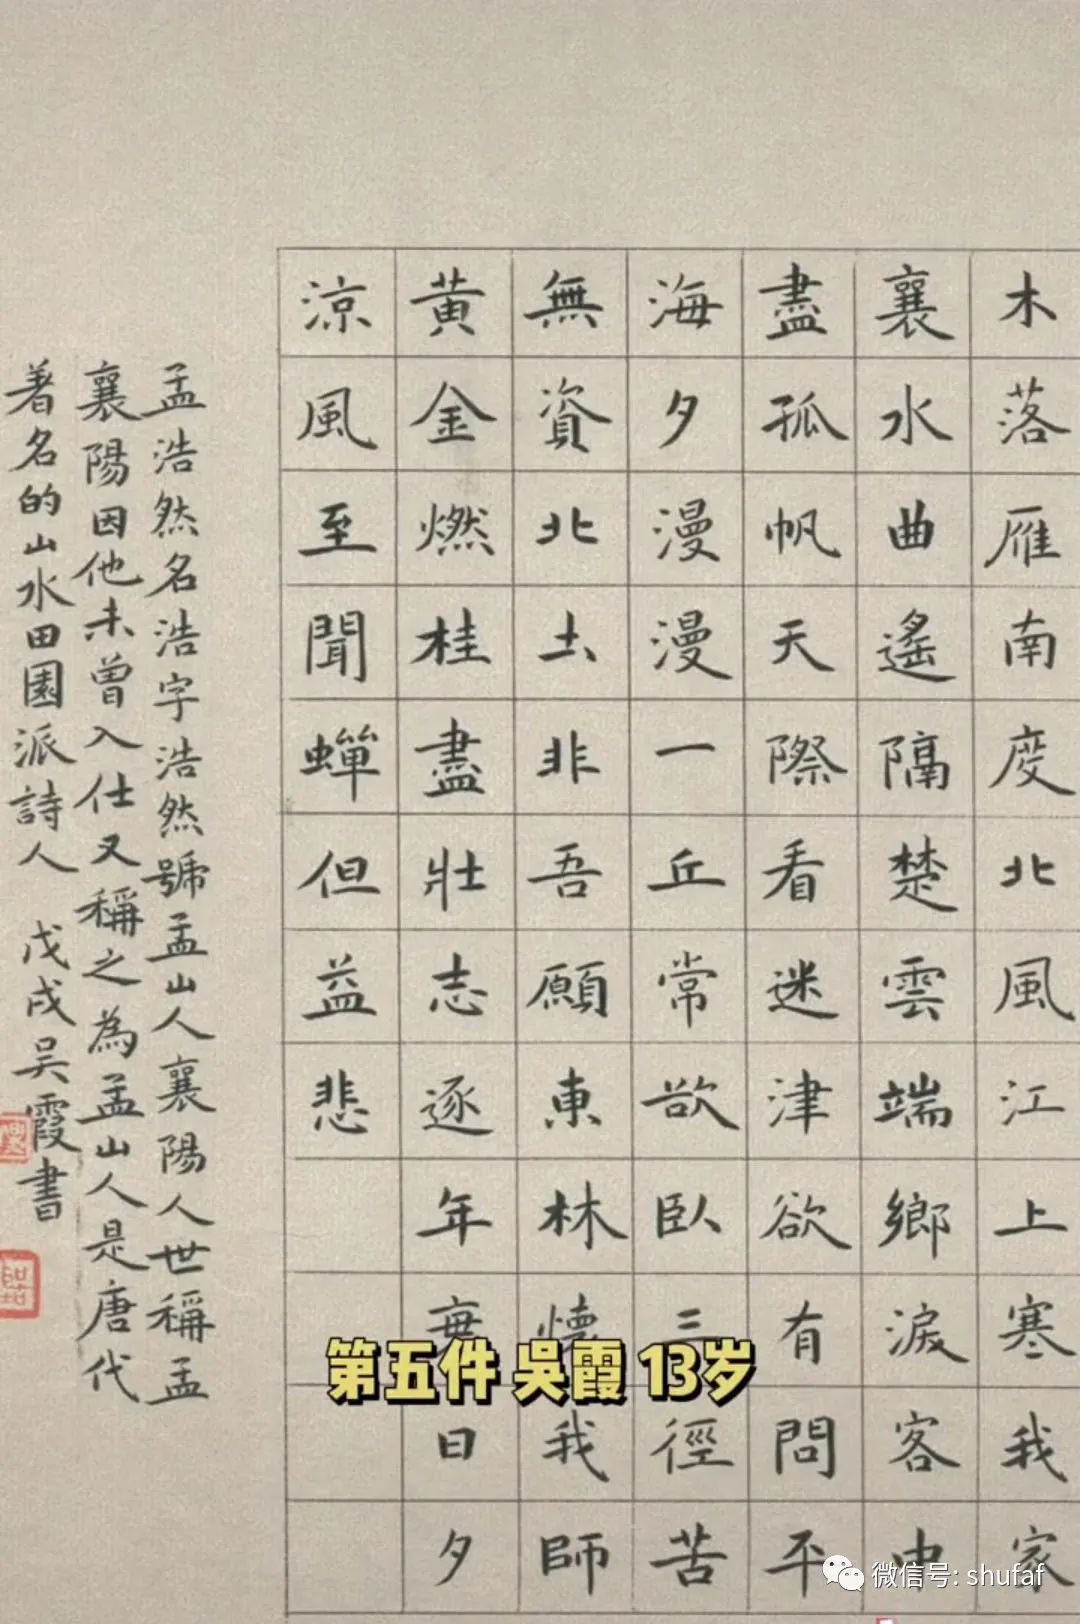 木落雁南度北風江上寒我家
襄水曲遙隔楚雲端鄉淚客中
盡孤帆天際看迷津欲有問平
海夕漫漫一丘常欲臥三徑苦
無資北土非吾願東林懷我師
黃金燃桂盡壯志逐年衰日夕
涼風至聞蟬但益悲
孟浩然名浩字浩然號孟山人襄陽人世稱孟
襄陽因他未曾入仕又稱之為孟山人是唐代
著名的山水田園派詩人 戊戌吴霞書
第五件 吳霞 13岁
微信号: shufaf